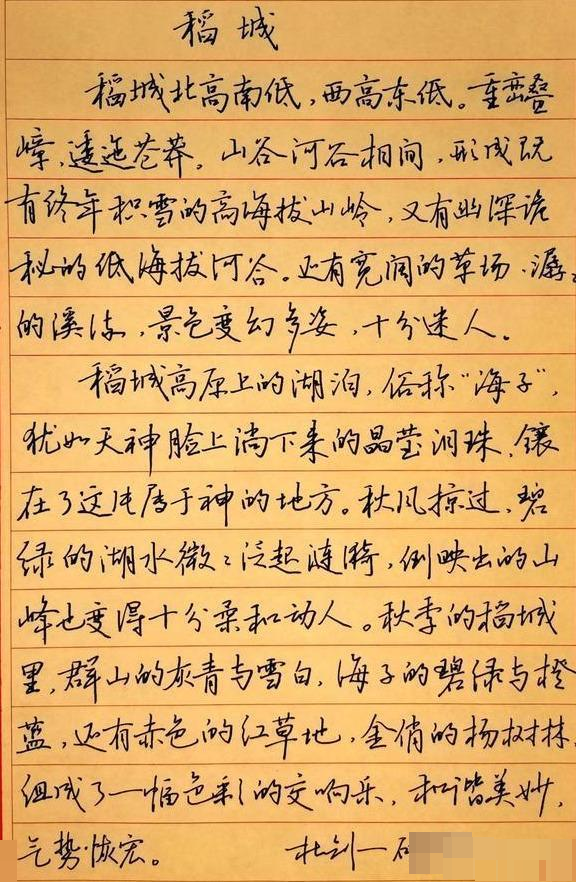 稻城
稻城北高南低,西高东低。重峦叠
嶂,逶迤苍莽。山谷河谷相间,形成既
有终年积雪的高海拔山岭,又有幽深诡
秘的低海拔河谷。还有宽阔的草场、潺々
的溪流,景色变幻多姿,十分迷人。
稻城高原上的湖泊,俗称“海子”,
犹如天神脸上淌下来的晶莹泪珠,镶
在了这片属于神的地方。秋风掠过,碧
绿的湖水微々泛起涟漪,倒映出的山
峰也变得十分柔和动人。秋季的稻城
里,群山的灰青与雪白,海子的碧绿与橙
蓝,还有赤色的红草地,金俏的杨树林,
组成了一幅色彩的交响乐,和谐美妙,
气势恢宏。 杜剑一